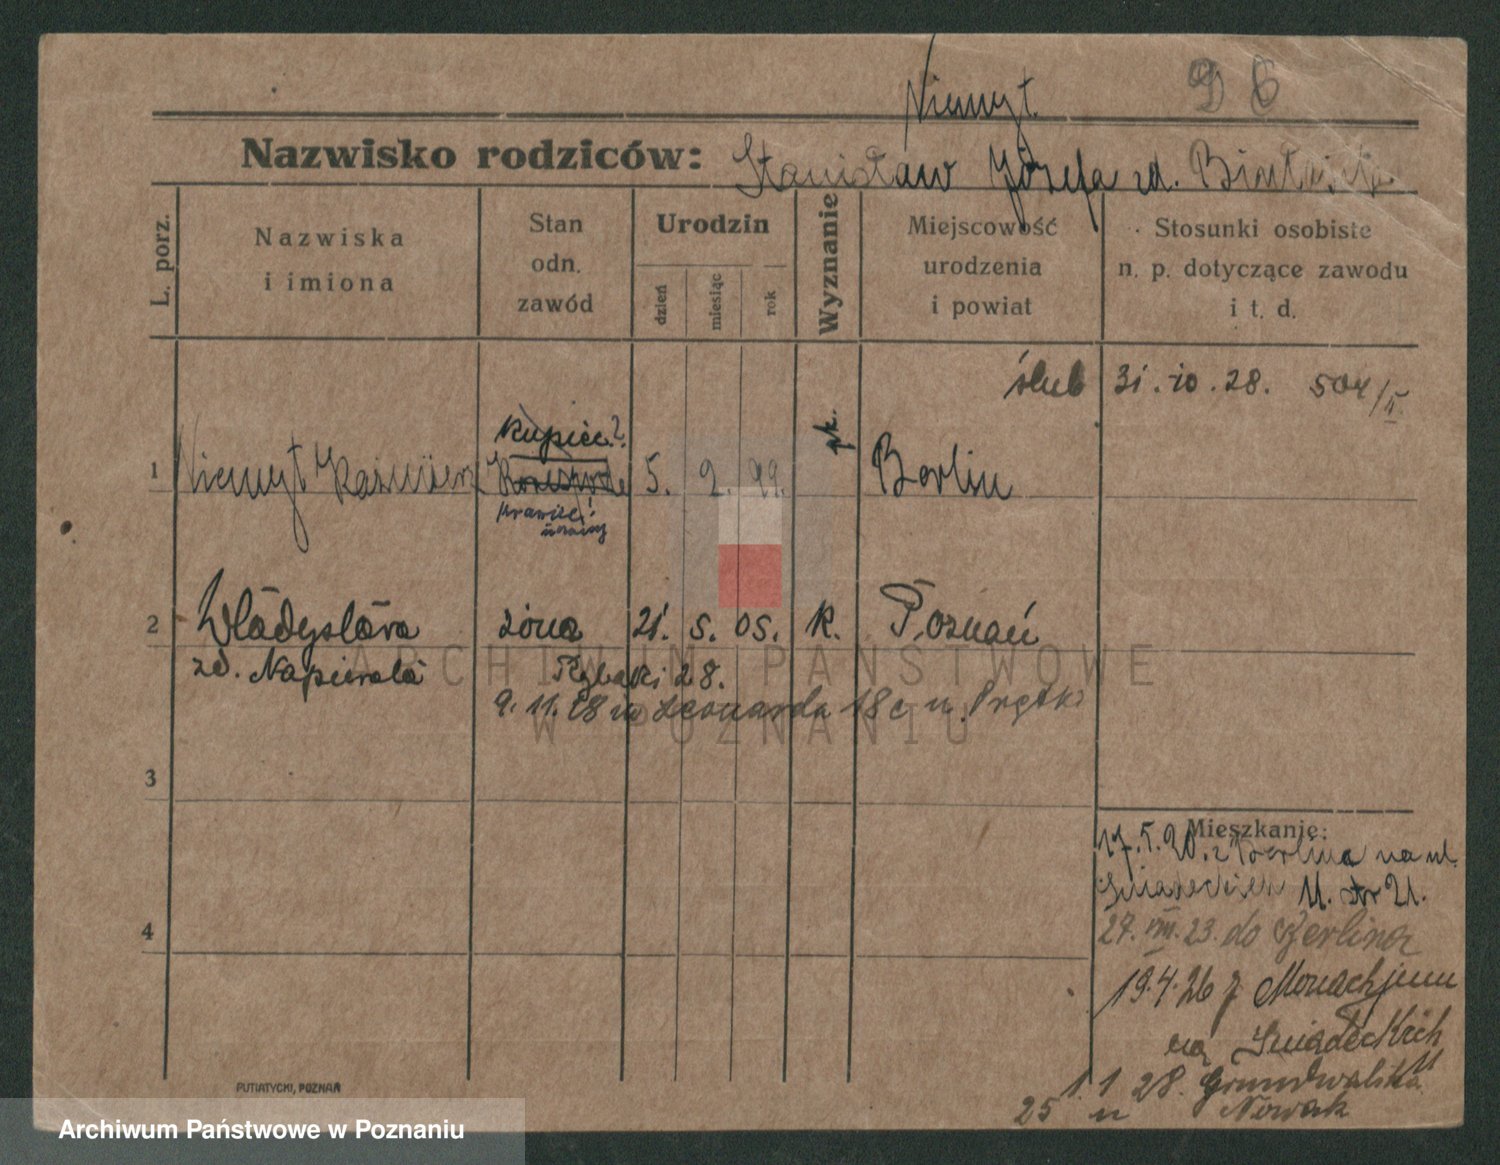 Niemyt. 96
Nazwisko rodziców: Stanisław Józefa zd.
L. porz.
Nazwiska i imiona
Stan odn. zawód
Urodzin
dzień
miesiąc
rok
Wyznanie
Miejscowość urodzenia i powiat
Stosunki osobiste n. p. dotyczące zawodu i t. d.
ślub 31.10.28. 504/II
kupiec?
1 Niemyt Kaźmierz 5. 2. 99. rk. Berlin
krawiec!
2 Władysława żona 21. 5. 05. k. Poznań
zd. Napierała Rybaki 28.
9.11.28 w Leonarda 18c u. Prętki
3
Mieszkanie:
17.5.20. z Berlina na ul.
Śniadeckich 11. ptr 21.
4
27.VIII.23. do Berlina
19.4.26 z Monachjum
na Śniadeckich 11
1.1.28. Grunwaldzka
25 u Nowak
PUTIATYCKI, POZNAŃ
ARCHIWUM PAŃSTWOWE
W POZNANIU
Archiwum Państwowe w Poznaniu